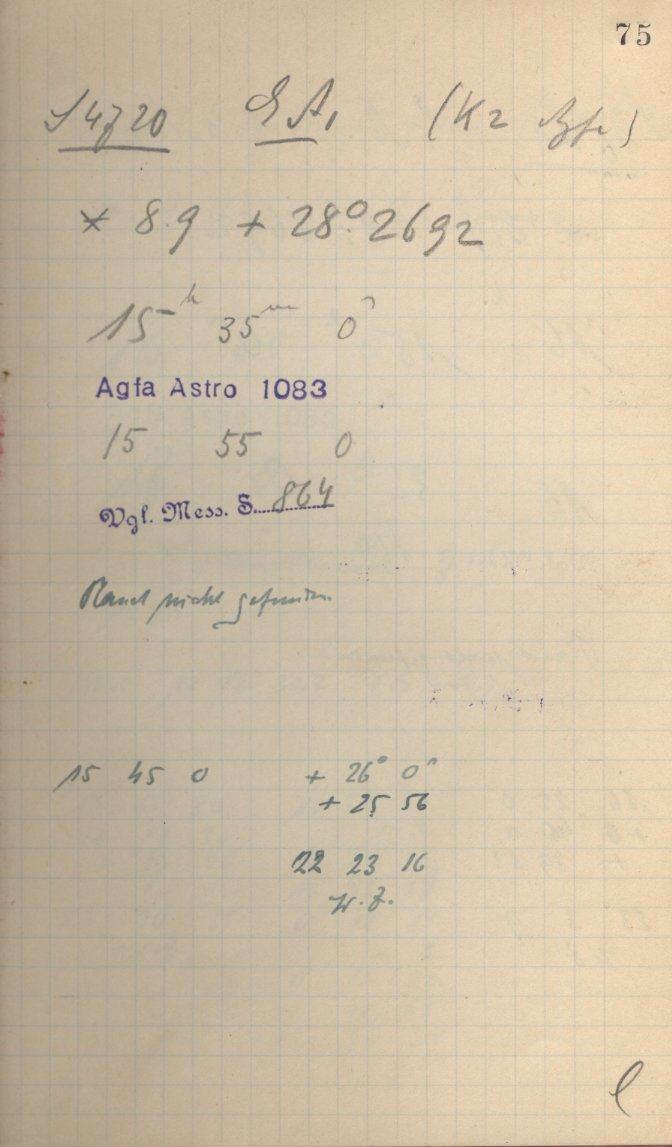 75
S4720 E A, (K2 )
* 8.9 + 28° 2692
15h 35m 0s
Agfa Astro 1083
15 55 0
Vgl. Mess. S. 864
Rand nicht gefunden.
15 45 0 + 26° 0'
+ 25 56
22 23 16
W. Z.